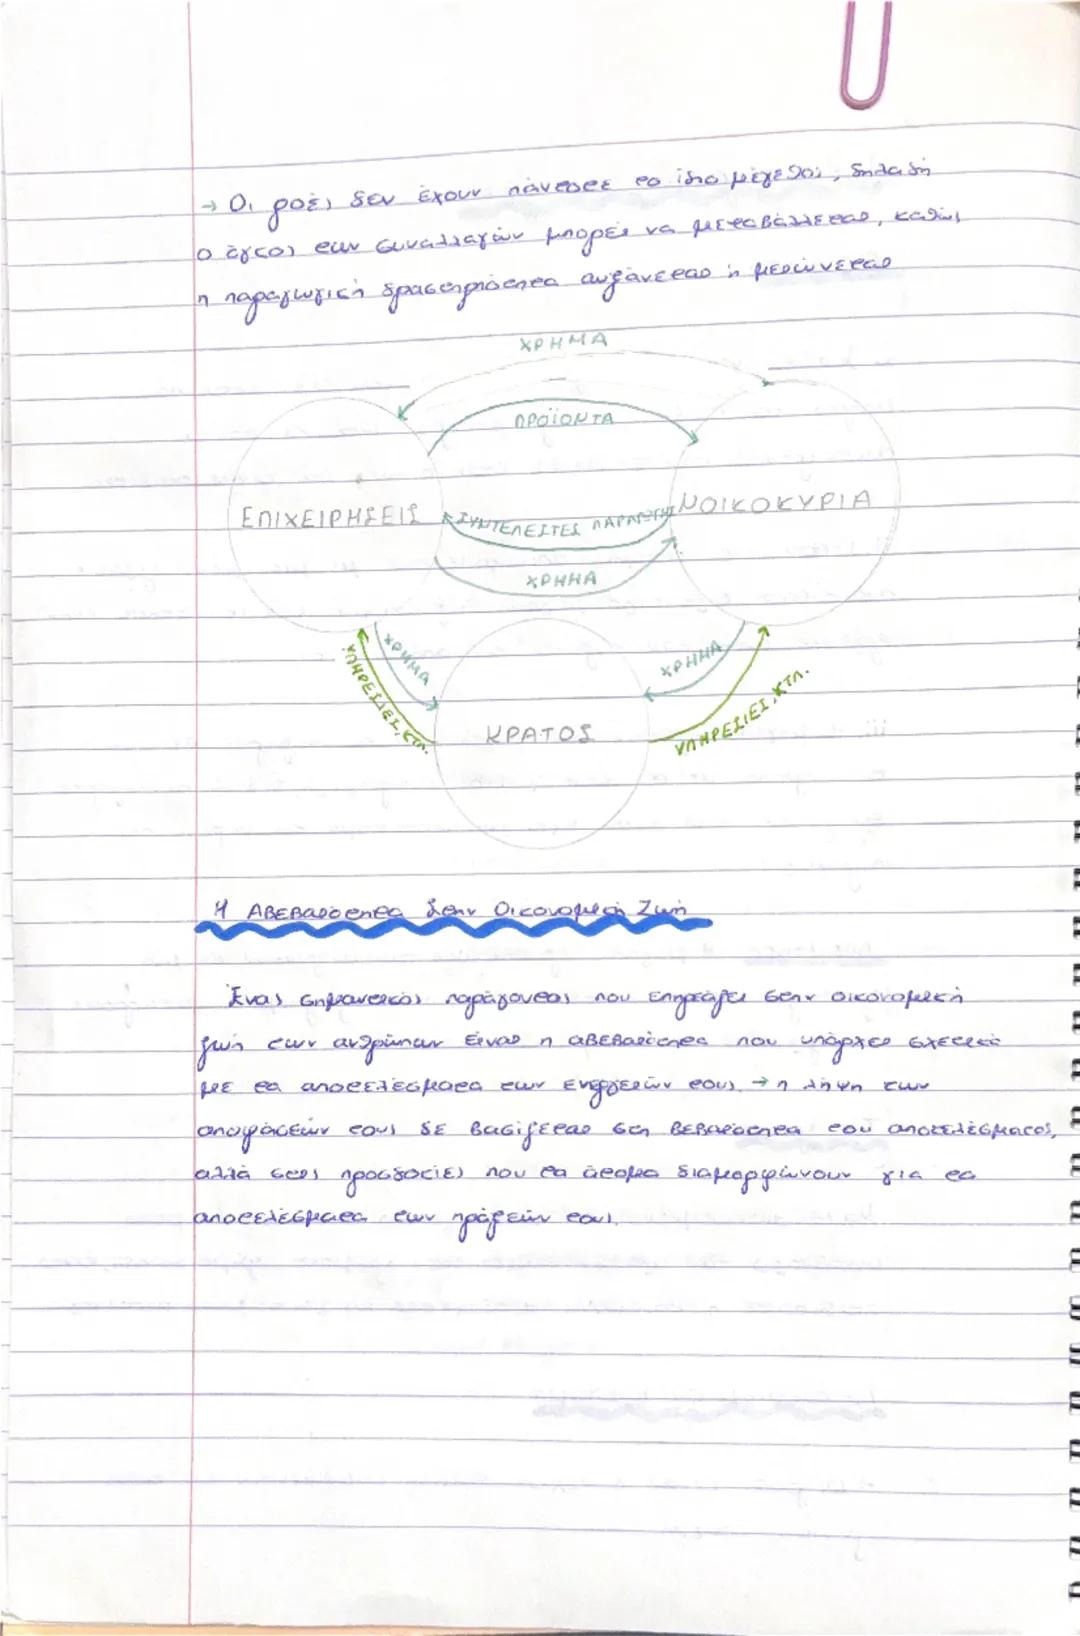 → Οι ροές δεν έχουν πάντοτε το ίδιο μέγεθος, δηλαδή
ο όγκος των συναλλαγών μπορεί να μεταβάλλεται, καθώς
η παραγωγική δραστηριότητα αυξάνεται ή μειώνεται
ΧΡΗΜΑ
ΠΡΟΪΟΝΤΑ
ΕΠΙΧΕΙΡΗΣΕΙΣ
ΣΥΝΤΕΛΕΣΤΕΣ ΠΑΡΑΓΩΓΗΣ
ΝΟΙΚΟΚΥΡΙΑ
ΧΡΗΜΑ
ΧΡΗΜΑ
ΥΠΗΡΕΣΙΕΣ, ΚΤΛ.
ΧΡΗΜΑ
ΥΠΗΡΕΣΙΕΣ, ΚΤΛ.
ΚΡΑΤΟΣ
Η Αβεβαιότητα Στην Οικονομική Ζωή
Ένας σημαντικός παράγοντας που επηρεάζει στην οικονομική
ζωή των ανθρώπων είναι η αβεβαιότητα που υπάρχει σχετικά
με τα αποτελέσματα των ενεργειών τους. → η λήψη των
αποφάσεών τους δε βασίζεται στη βεβαιότητα του αποτελέσματος,
αλλά στις προσδοκίες που τα άτομα διαμορφώνουν για τα
αποτελέσματα των πράξεών τους.